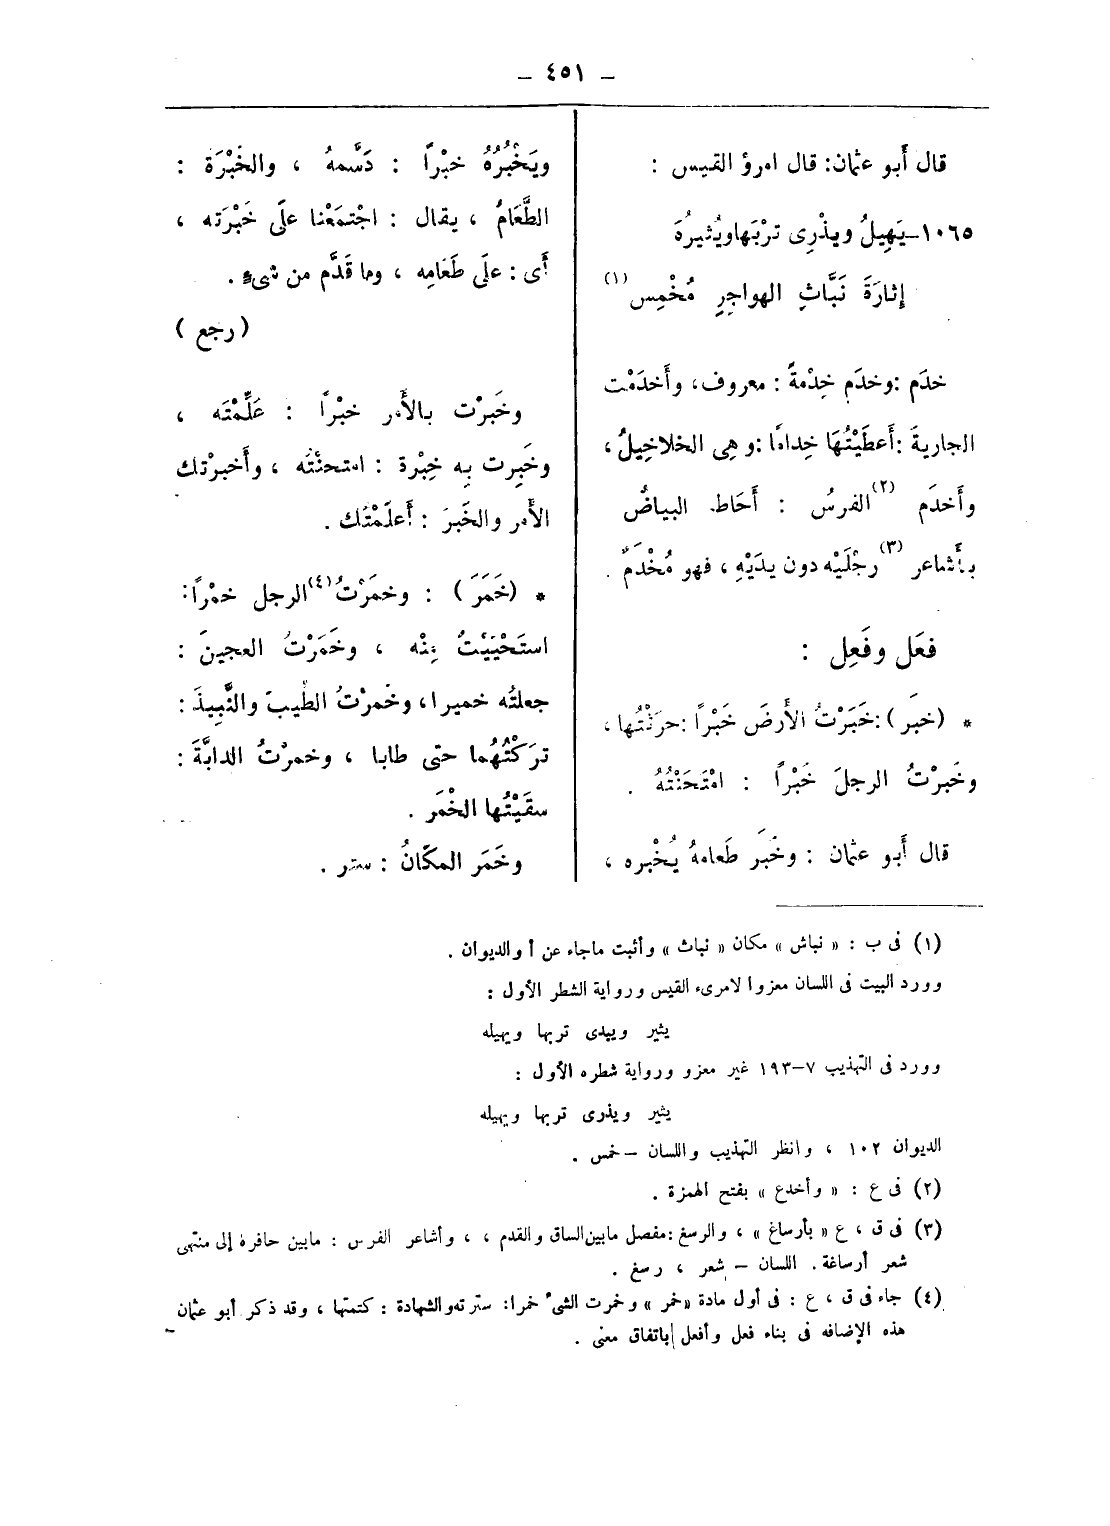 – ٤٥١ –
قال أَبو عثمان: قال امرؤ القيس :
١٠٦٥–يَهِيلُ ويذْرِى تربَها ويُثيرهُ
إثارَةَ نَبَّاثِ الهواجِرِ مُخْمِس (١)
خدَم :وخدَم خِدْمةً : معروف، وأَخدَمْت
الجاريةَ :أَعطَيْتُهَا خِدامًا :وهى الخلاخِيلُ ،
وأَخدَم (٢) الفرسُ : أَحَاط البياضُ
بأَشاعر (٣) رجْلَيْه دون يدَيْهِ ، فهو مُخْدَمٌ .
فعَل وفَعِل :
* (خبَر) :خَبَرْتُ الأَرضَ خَبْرًا :حرَثْتُها ،
وخَبرْتُ الرجلَ خَبْرًا : امْتَحَنْتُهُ .
قال أَبو عثمان : وخَبَر طَعامهُ يُخْبره ،
ويَخْبُرُهُ خبْرًا : دَسَّمهُ ، والخَبْرَة :
الطَّعَامُ ، يقال : اجْتمَعْنا علَى خَبْرَته ،
أَى : علَى طَعَامِه ، وما قَدَّم من شىءٍ .
(رجع)
وخَبَرْت بالأَمر خبْرًا : عَلِمْتَه ،
وخَبِرت بِه خِبْرة : امتحنْتُه ، وأَخبرْتك
الأَمر والخَبرَ : أَعلَمْتُك .
* (خَمَرَ) : وخمَرْتُ (٤) الرجل خمْرًا:
استَحْيَيْتُ مِنْه ، وخَمَرْتُ العجينَ :
جعلتُه خميرا، وخَمرْتُ الطِّيبَ والنَّبِيذَ :
تركْتُهُما حتى طابا ، وخمرْتُ الدابَّةَ :
سقَيْتُها الخْمَر .
وخَمَر المكَانُ : ستر .
(١) فى ب : « نباش » مكان « نباث » وأثبت ماجاء عن أ والديوان .
وورد البيت فى اللسان معزوا لامرىء القيس ورواية الشطر الأول :
يثير ويبدى تربها ويهيله
وورد فى التهذيب ٧–١٩٣ غير معزو ورواية شطره الأول :
يثير ويذرى تربها ويهيله
الديوان ١٠٢ ، وانظر التهذيب واللسان – خمس .
(٢) فى ع : « وأخدع » بفتح الهمزة .
(٣) فى ق ، ع « بأرساغ » ، والرسغ :مفصل مابين الساق والقدم ، ، وأشاعر الفرس : مابين حافره إلى منتهى
شعر أرساغة . اللسان – شعر ، رسغ .
(٤) جاء فى ق ، ع : فى أول مادة «خمر » وخمرت الشىء خمرا: سترته والشهادة : كتمتها ، وقد ذكر أبو عثمان
هذه الإضافه فى بناء فعل وأفعل باتفاق معنى .